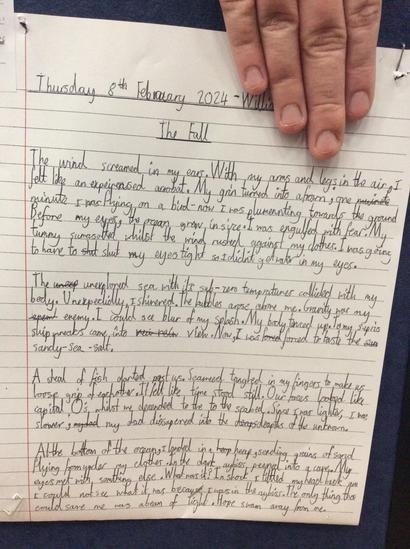 Thursday 8th February 2024 - Willi
The Fall
The wind screamed in my ears. With my arms and legs in the air, I
felt like an expeirensed acrobat. My grin turned into a frown, one
minute I was flying on a bird - now I was plumennting towards the ground
Before my eyes, the ocean grew in size. I was engulfed with fear. My
tummy sumersetted whilst the wind rushed against my clothes. I was going
to have to shut my eyes tight so I didn't get water in my eyes.
The unexplored sea with its sub-zero tempratures collided with my
body. Unexpectidly, I shivered. The bubbles arose above me. Gravity was my
enemy. I could see blur of my splash. My body tenced up. To my
ship wreaks came into view. Now, I was forced to taste the
sandy-sea-salt.
A sheal of fish darted past us. Seaweed tangled in my fingers to make us
loose grip of eachother. It felt like time stood still. Our faces looked like
capital O's whilst we decended to the to the seabed. Since I was lighter, I was
slower, my dad dissapeared into the depths of the unknown.
At the bottom of the ocean, I landed in a heap, sending grains of sand
flying from under my clothes. In the dark abyss, peered into a cave. My
eyes met with somthing else. What was it? In shock I tilted my head back
I could not see what it was because I was in the abyss. The only thing that
could save me was a beam of light. Hope swam away from me.